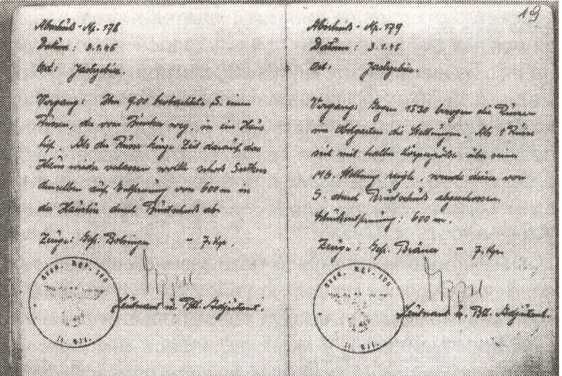 Abschuß-Np. 178
Datum: 3.1.45
Ort: Jaslyban.
Vorgang: Um 900 beobachtete S. einen
Russen, der vom Bunker weg, in ein Haus
lief. Als der Russe kurze Zeit darauf das
Haus wieder verlassen wollte schoß
denselben auf Entfernung von 600 m in
der Haustür durch Brustschuß ab.
Zeuge: Gef. - 7. Kp.
Leutnant u. Btl. Adjutant.
19
Abschuß-Np. 179
Datum: 3.1.45
Ort: Jaslyban.
Vorgang: Gegen 1530 bezogen die Russen
im Obstgarten die Stellungen. Als 1 Russe
sich mit halber Körpergröße über seiner
M.G. Stellung zeigte, wurde dieser von
S. durch Brustschuß abgeschossen.
Schußentfernung: 600 m.
Zeuge: Gef. - 7. Kp.
Leutnant u. Btl. Adjutant.